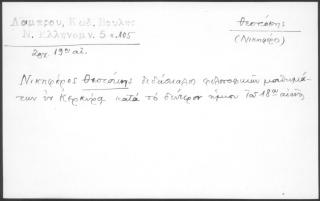 Λαμπρου, Κωδ. Βουλης
Ν. Ελληνομν. 5 σ. 105
Θεοτόκης
(Νικηφόρος)
19ου αἰ.
Νικηφόρος Θεοτόκης διδάσκαλος φιλοσοφικῶν μαθημά-
των ἐν Κερκύρᾳ κατὰ τὸ δεύτερον ἥμισυ τοῦ 18ου αἰῶνος